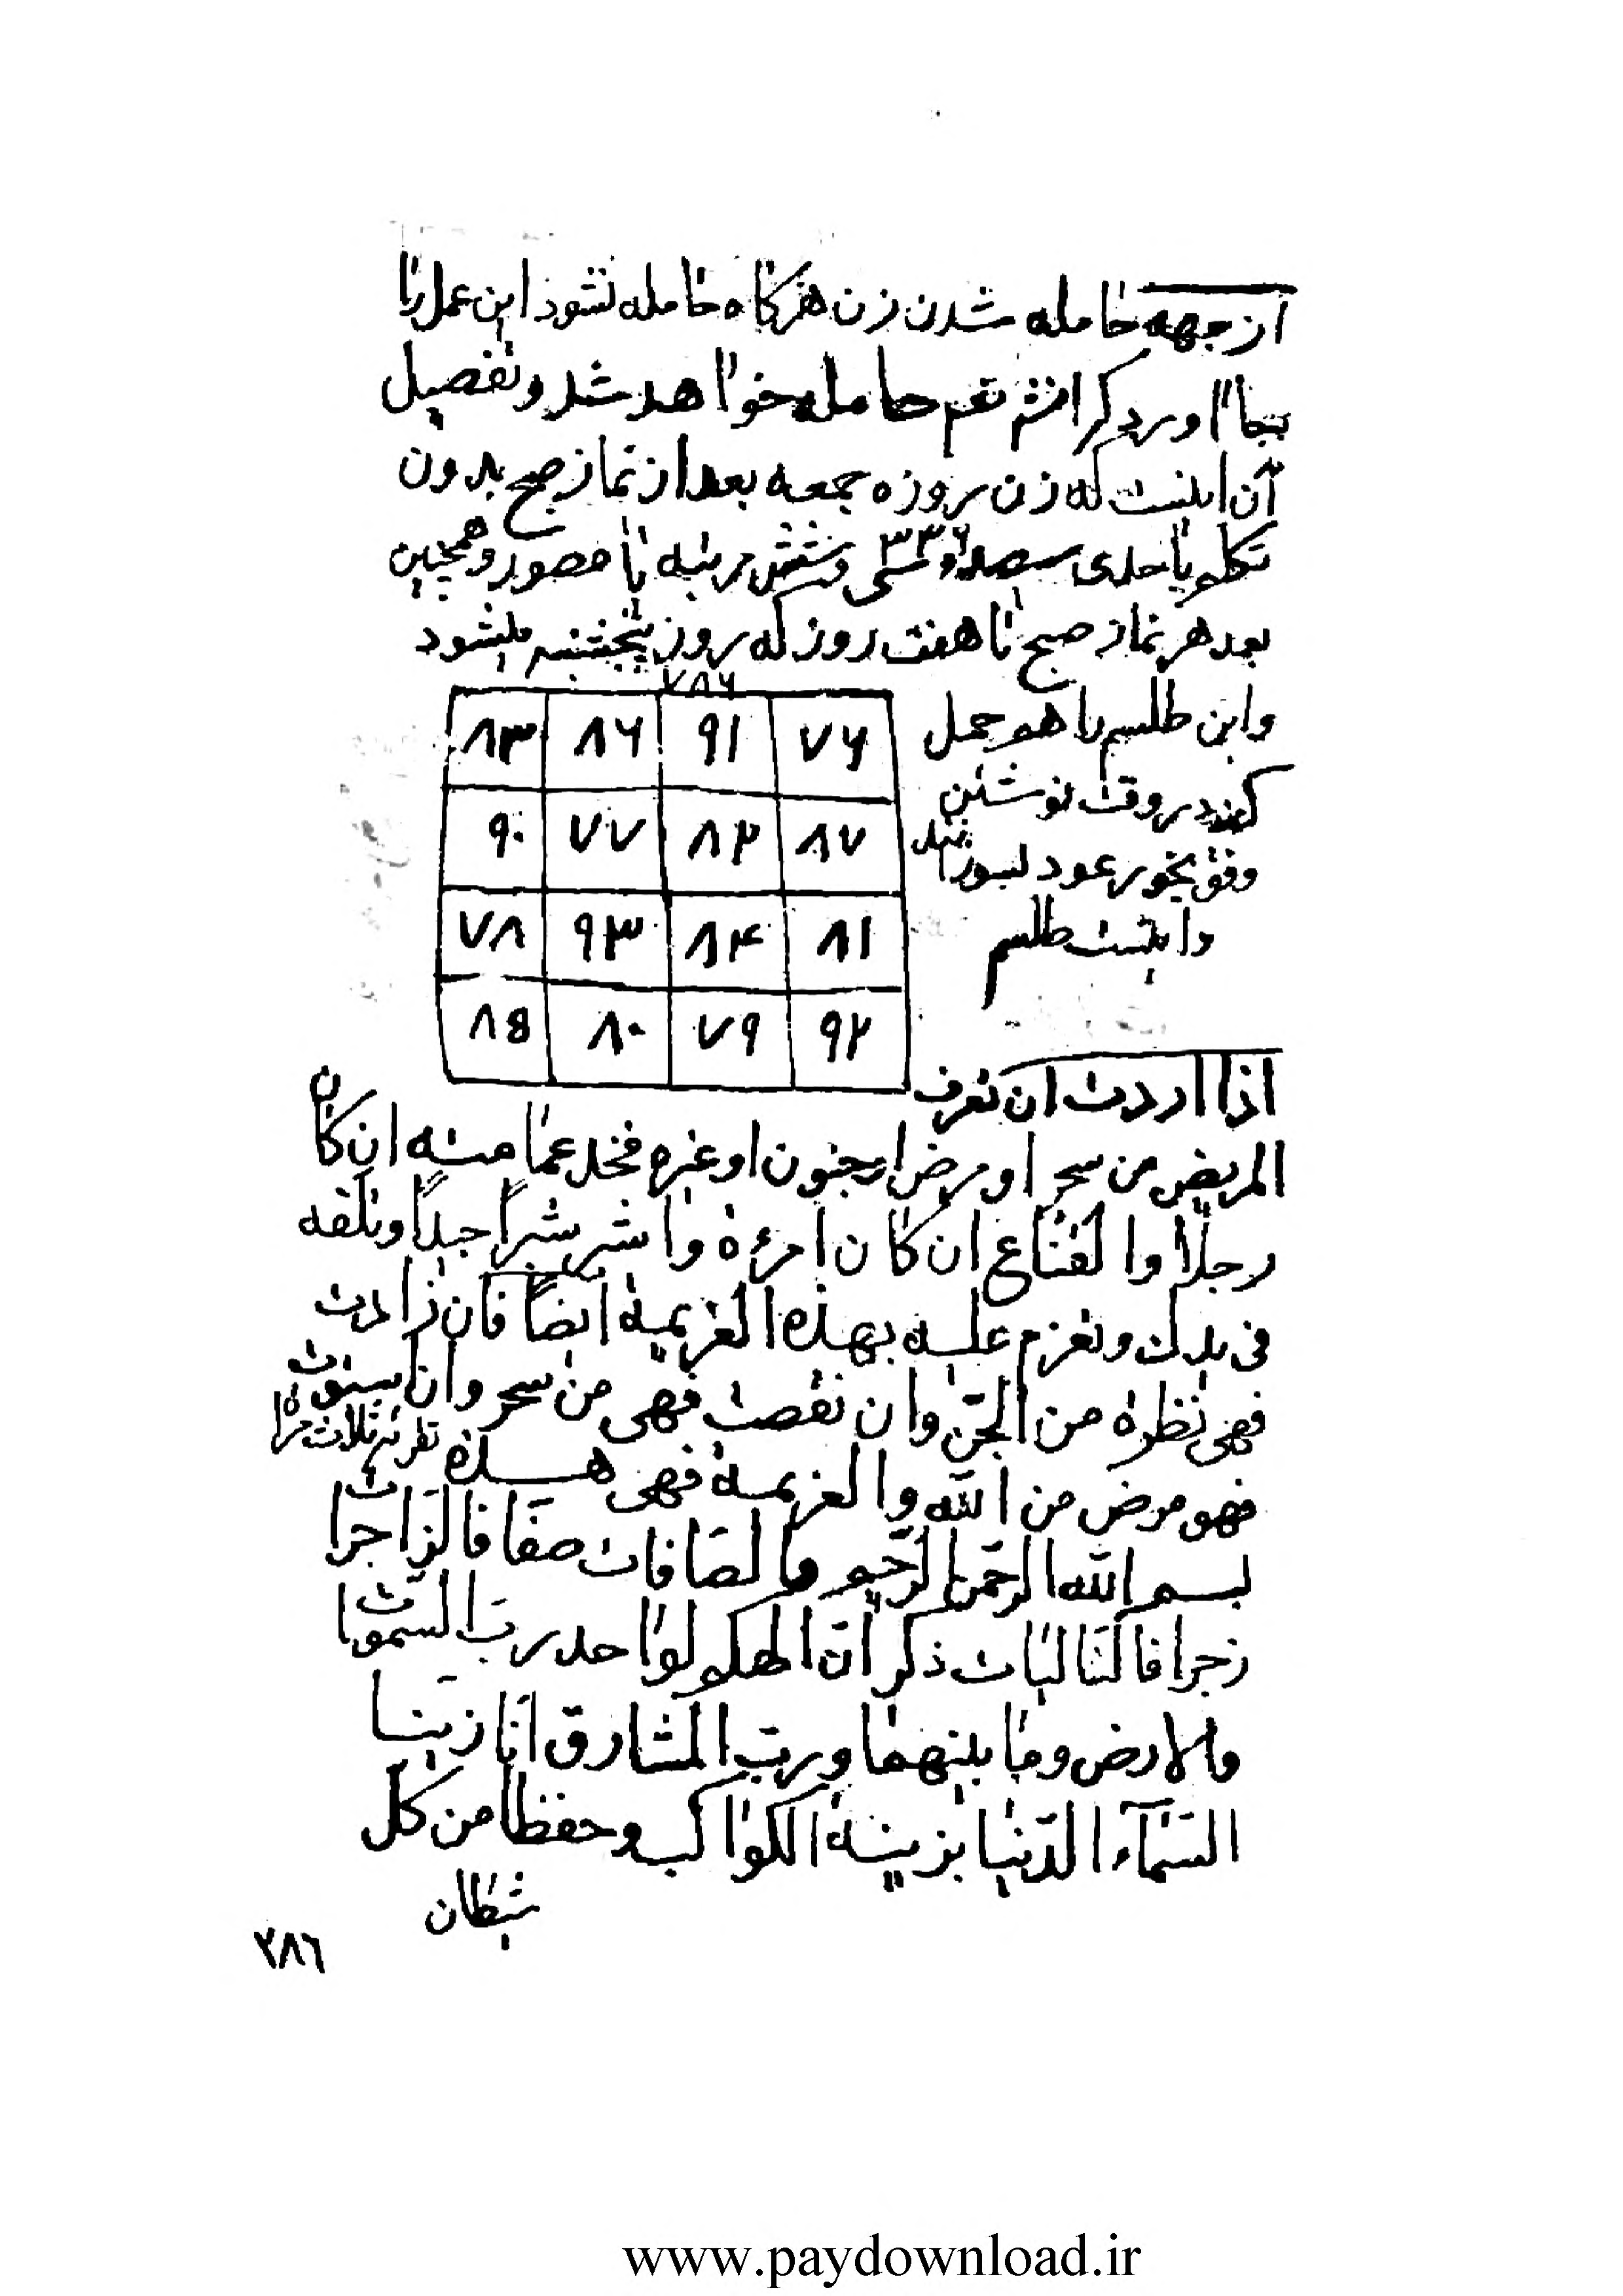 از جهه حامله شدن زن هرکاه حامله نشود این عمل را
بجا اورد کر انشم تعم حامله خواهد شد و تفصیل
آن اینست که زن بروزه جمعه بعد از نماز صبح بدون
تکلم با حدی سیصد و سی و شش مرتبه یا مصور و همچنین
۳۳۶
بعد هر نماز صبح تا هفت روز که روز پنجشنبه میشود
و این طلسم را هو حمل
کند در وقت نوشتن
وفق بخور عود بسوزانند
و اینست طلسم
۷۸۶
۸۳ ۸۶ ۹۱ ۷۶
۹۰ ۷۷ ۸۲ ۸۷
۷۸ ۹۳ ۸۴ ۸۱
۸۵ ۸۰ ۷۹ ۹۲
اذا اردت ان تعرف
المریض من سحر او مرض او جنون او غیره فخذ عمامته ان کان
رجلاً او القناع ان کان امرءة واشبر شبراً جیداً وتلفه
فی یدک وتعزم علیه بهذه العزیمة ایضاً فان زادت
فهی نظرة من الجن وان نقصت فهی من سحر وان استوت
فهو مرض من الله والعزیمة فهی هذه تقرئه ثلاث مراة
بسم الله الرحمن الرحیم والصافات صفا فالزاجرات
زجرا فالتالیات ذکرا ان الهکم لواحد رب السموات
والارض وما بینهما ورب المشارق انا زینا
السمآء الدنیا بزینة الکواکب وحفظا من کل
شیطان
۲۸۶
www.paydownload.ir